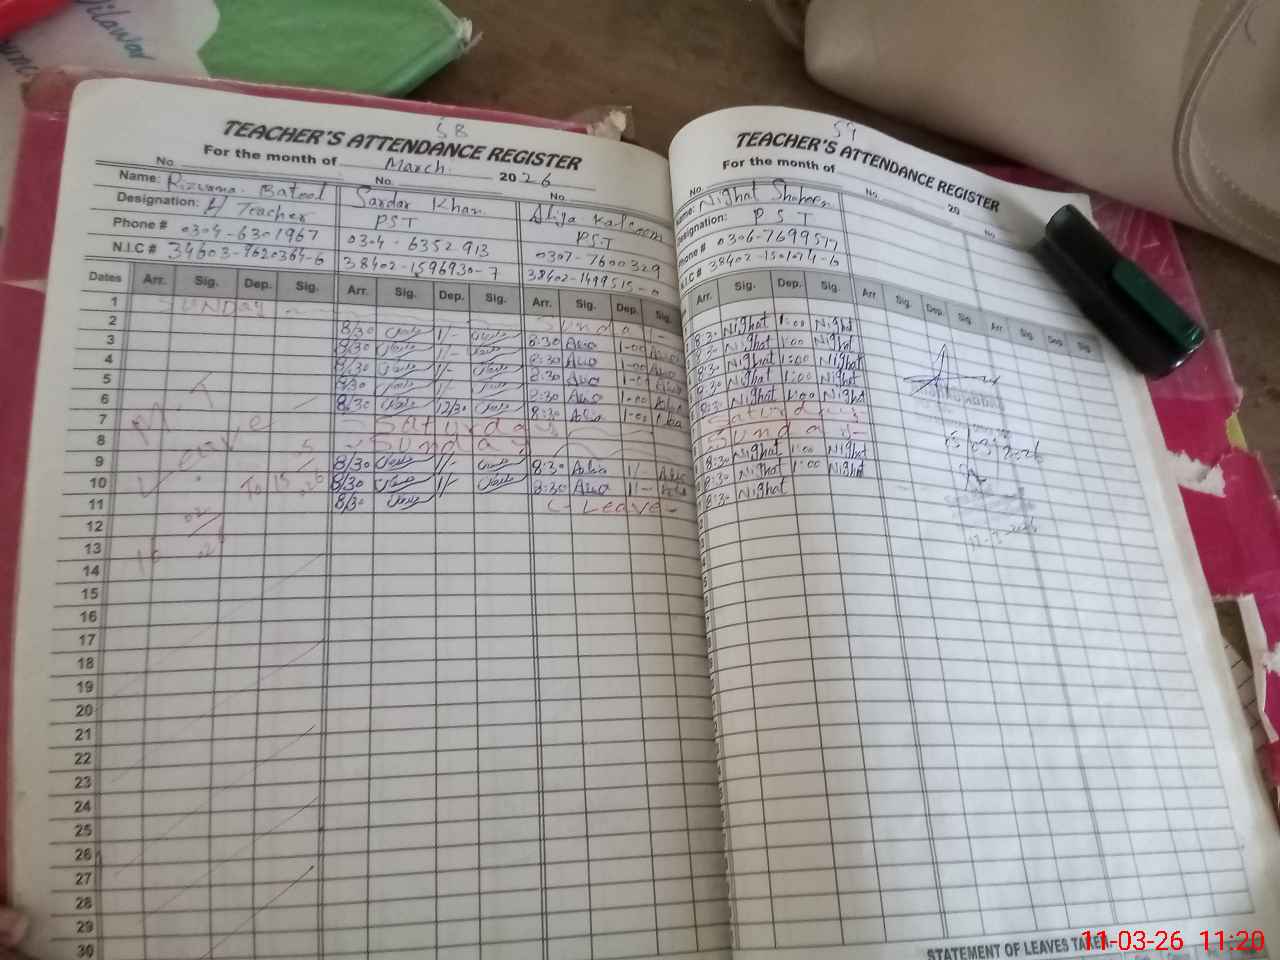 Dilawar
58
TEACHER'S ATTENDANCE REGISTER
For the month of March 2026
No. No. No.
Name: Rizwana Batool Sardar Khan Aliya Kalsoom
Designation: H/Teacher PST PST
Phone # 0304-6301967 0304-6352913 0307-7600329
N.I.C # 34603-9620364-6 38402-1596930-7 38402-1499515-
Dates Arr. Sig. Dep. Sig. Arr. Sig. Dep. Sig. Arr. Sig. Dep. Sig.
1 SUNDAY Sunda
2 8/30 1/- 8:30 Alia 1-00 Alia
3 8/30 1/- 8:30 Alia 1-00 Alia
4 8/30 1/- 8:30 Alia 1-00 Alia
5 8/30 1/- 8:30 Alia 1-00 Alia
6 8/30 12/30 8:30 Alia 1-00 Alia
7 Saturday
8 Sunday
9 8/30 1/- 8:30 Alia 1/- Alia
10 8/30 1/- 8:30 Alia 1/- Alia
11 8/30 Leave
12
13
14
15
16
17
18
19
20
21
22
23
24
25
26
27
28
29
30
M.T
Leave
To 15
59
TEACHER'S ATTENDANCE REGISTER
For the month of 20
No. No. No.
Name: Nighat Shaheen
Designation: PST
Phone # 0306-7699517
N.I.C # 38402-1501074-6
Arr. Sig. Dep. Sig. Arr. Sig. Dep. Sig. Arr. Sig. Dep. Sig.
8:30 Nighat 1:00 Nighat
8:30 Nighat 1:00 Nighat
8:30 Nighat 1:00 Nighat
8:30 Nighat 1:00 Nighat
8:30 Nighat 1:00 Nighat
Saturday
Sunday
8:30 Nighat 1:00 Nighat
8:30 Nighat 1:00 Nighat
8:30 Nighat
STATEMENT OF LEAVES TAKEN
11-03-26 11:20